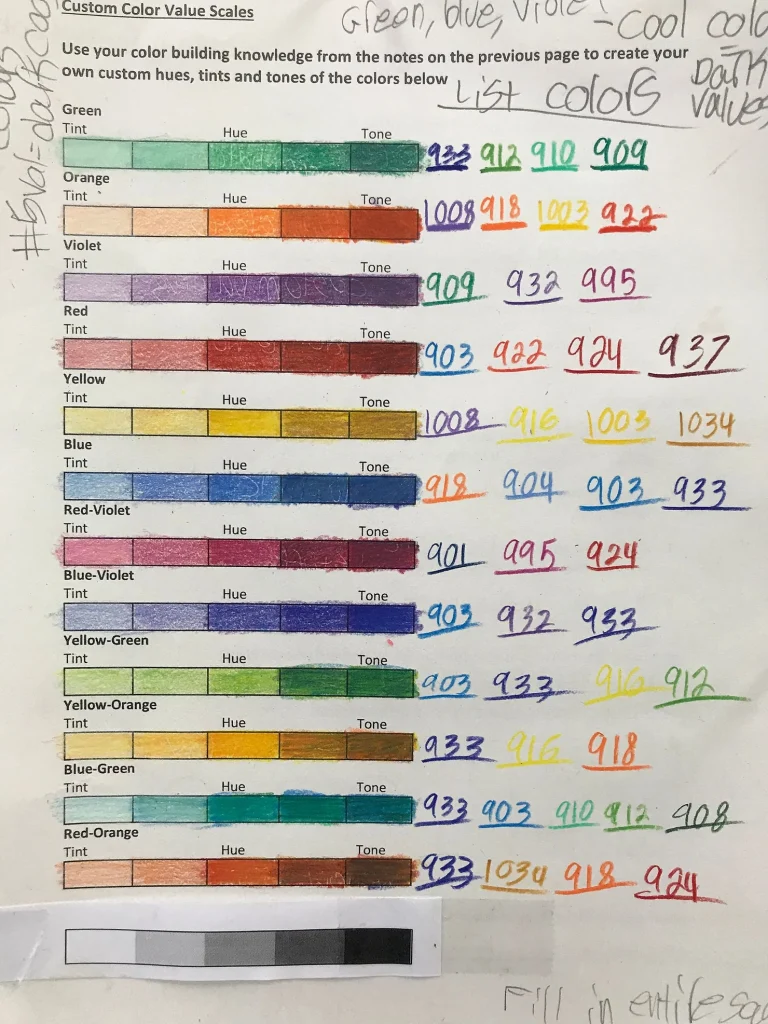 Custom Color Value Scales
Green, blue, Viole
- Cool colo
Use your color building knowledge from the notes on the previous page to create your
own custom hues, tints and tones of the colors below
List colors
Dark
values
#5val=dark
Green
Tint Hue Tone
933 912 910 909
Orange
Tint Hue Tone
1008 918 1003 922
Violet
Tint Hue Tone
909 932 995
Red
Tint Hue Tone
903 922 924 937
Yellow
Tint Hue Tone
1008 916 1003 1034
Blue
Tint Hue Tone
918 904 903 933
Red-Violet
Tint Hue Tone
901 995 924
Blue-Violet
Tint Hue Tone
903 932 933
Yellow-Green
Tint Hue Tone
903 933 916 912
Yellow-Orange
Tint Hue Tone
933 916 918
Blue-Green
Tint Hue Tone
933 903 910 912 908
Red-Orange
Tint Hue Tone
933 1034 918 924
Fill in entire squ